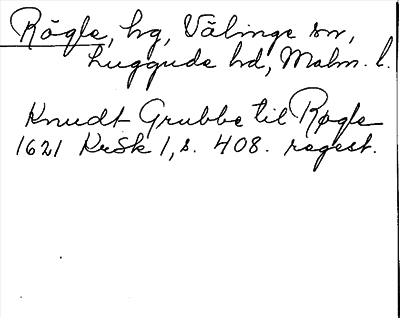 Rögle, hg, Välinge sn,
Luggude hd, Malm. l.
Knudt Grubbe til Røgle
1621 KrSk 1, s. 408. regest.